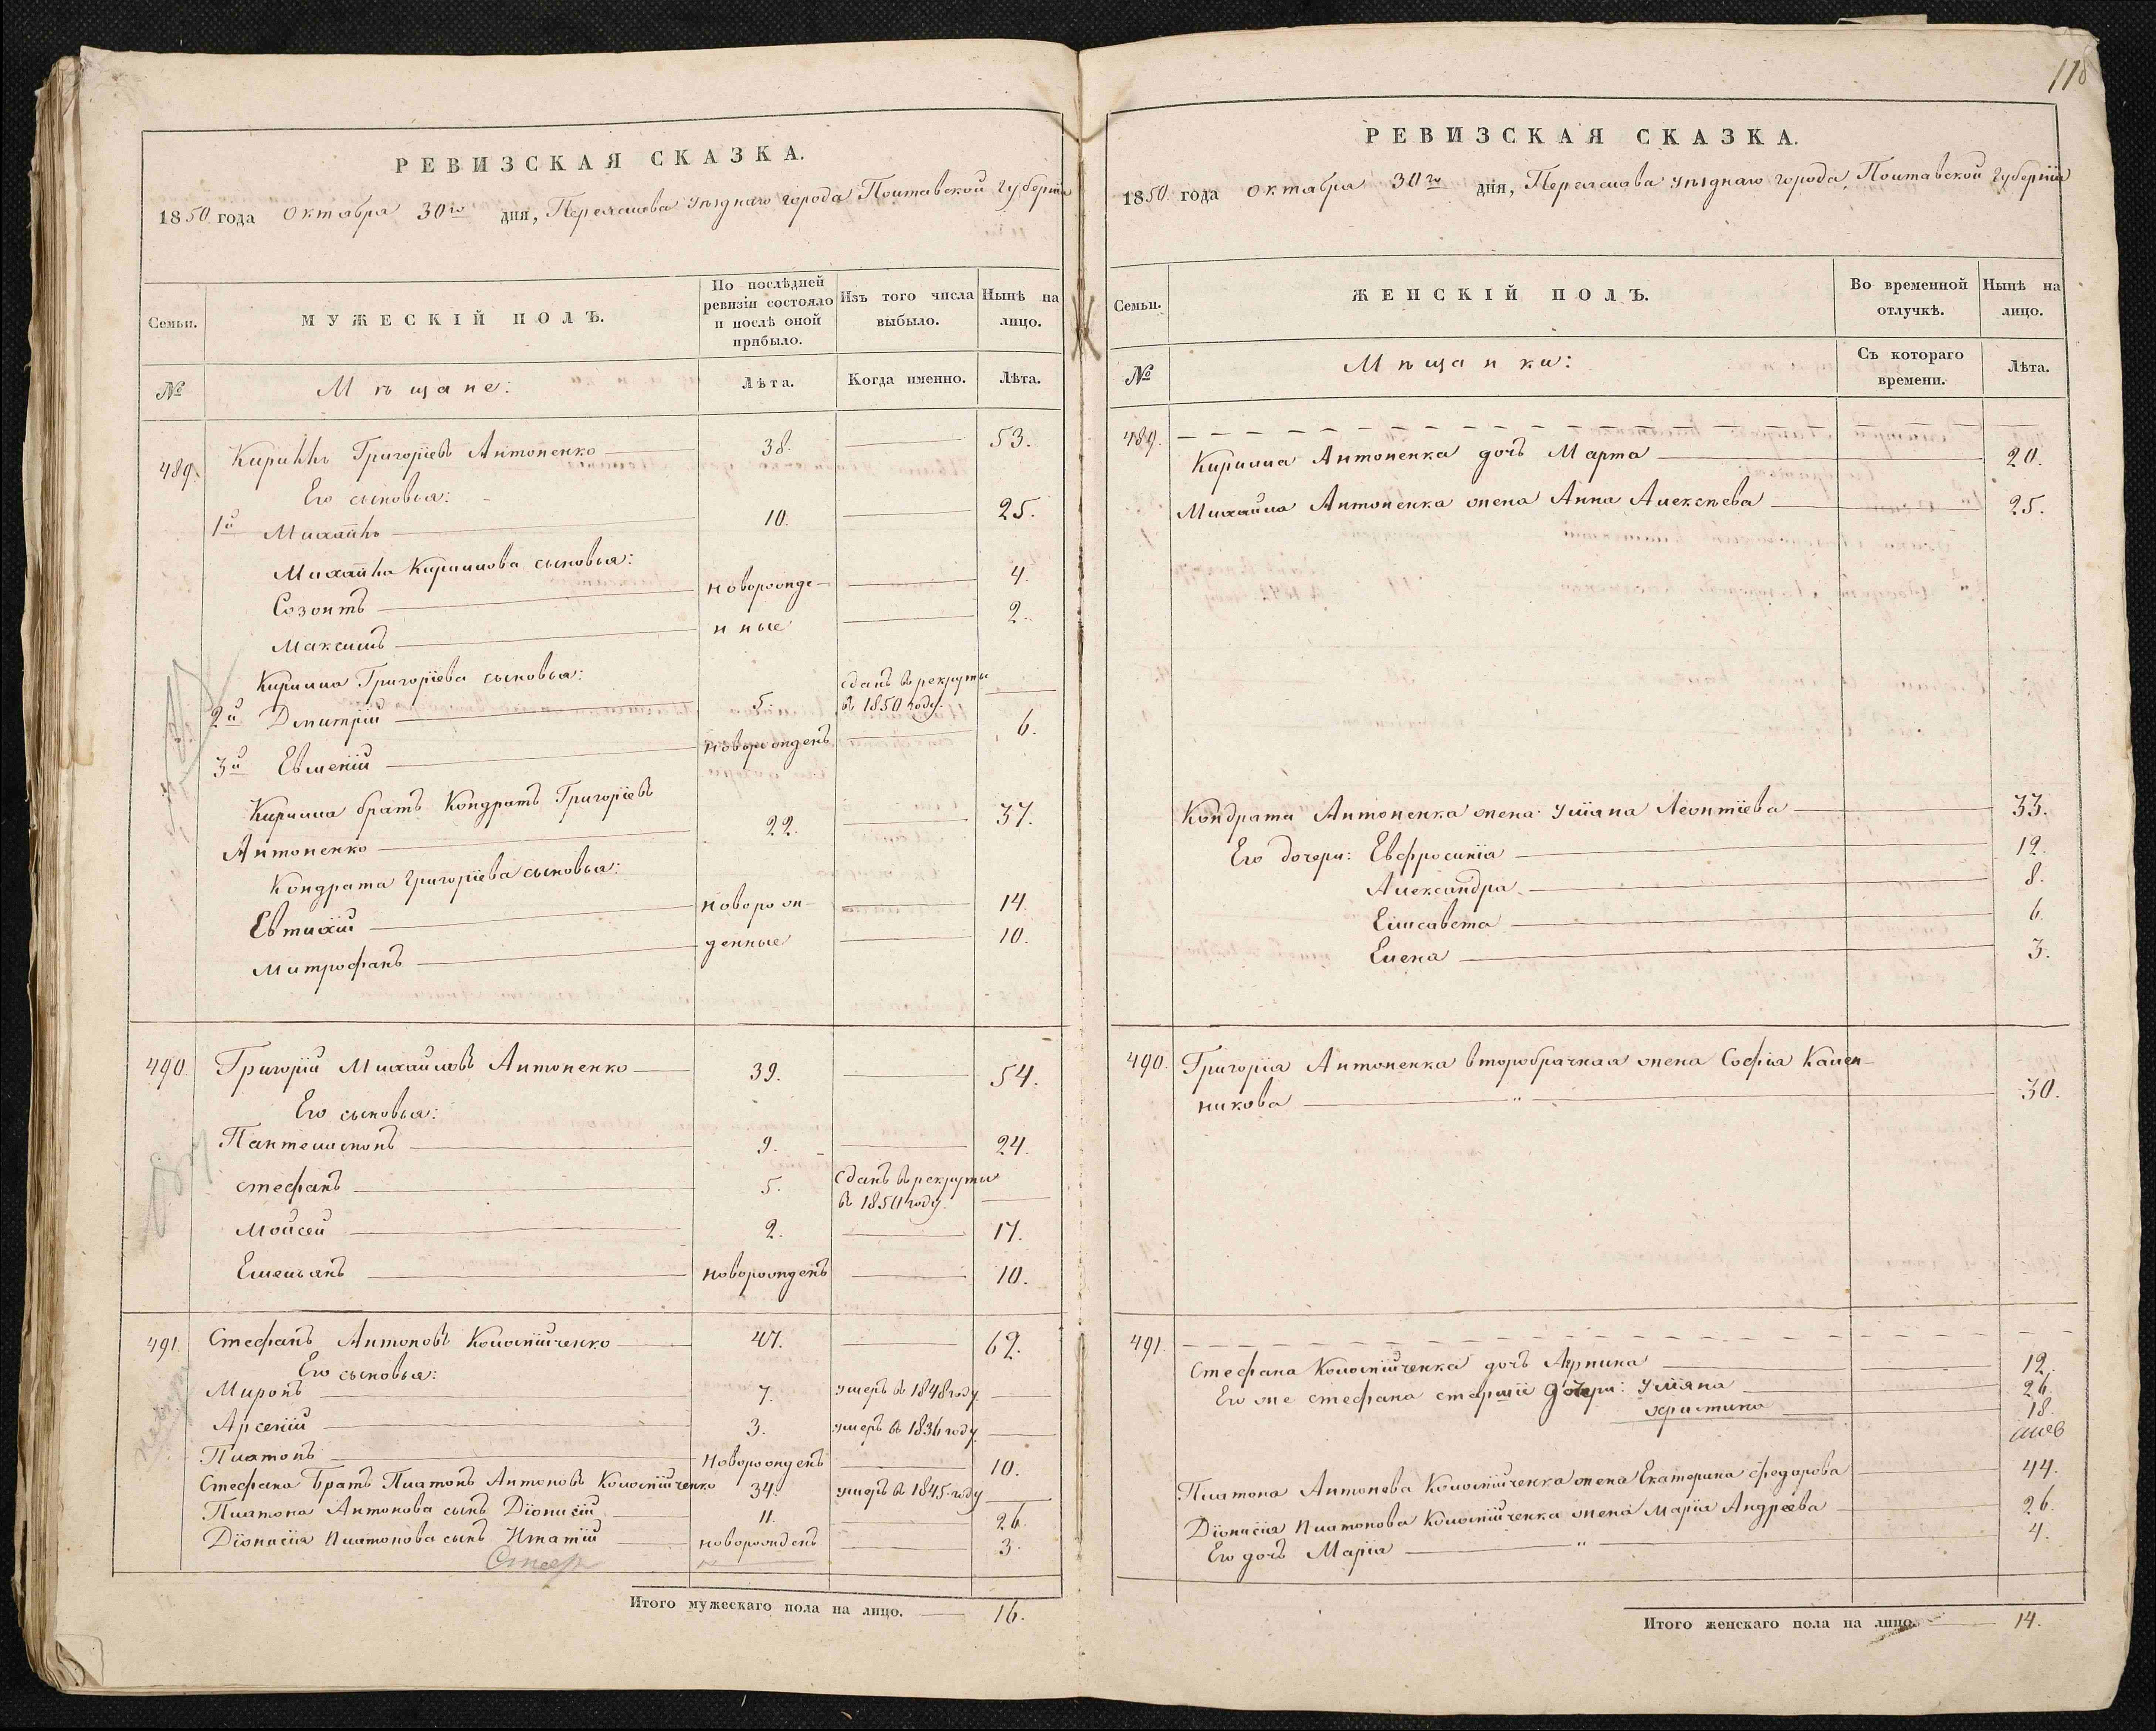 РЕВИЗСКАЯ СКАЗКА.
1850 года Октября 30го дня, Переяслова уѣзднаго города Полтавской губерніи
Семьи.
МУЖЕСКІЙ ПОЛЪ.
По послѣдней ревизіи состояло и послѣ оной прибыло.
Изъ того числа выбыло.
Нынѣ на лицо.
№
Мѣщане:
Лѣта.
Когда именно.
Лѣта.
489. Кириллъ Григоріевъ Антоненко 38. 53.
Его сыновья:
1й Михайлъ 10. 25.
Михайла Кирилова сыновья:
Созонтъ новорожде- 4.
Максимъ нные 2.
Кирила Григоріева сыновья:
2й Дмитрій 5. сданъ в рекруты в 1850 году.
3й Евмений новорожденъ 6.
Кирила братъ Кондратъ Григоріевъ
Антоненко 22. 37.
Кондрата Григоріева сыновья:
Евтихій новорож- 14.
Митрофанъ денные 10.
490. Григорій Михайловъ Антоненко 39. 54.
Его сыновья:
Пантелимонъ 9. 24.
Стефанъ 5. Сданъ в рекруты в 1850 году.
Мойсей 2. 17.
Емельянъ новорожденъ 10.
491. Стефанъ Антоновъ Коломійченко 47. 62.
Его сыновья:
Миронъ 7. умеръ в 1848 году
Арсеній 3. умеръ в 1836 году
Платонъ Новорожденъ 10.
Стефана Братъ Платонъ Антоновъ Коломійченко 34. умеръ в 1845 году
Платона Антонова сынъ Діонисій 11. 26.
Діонисія Платонова сынъ Игнатій новорожденъ 3.
Итого мужескаго пола на лицо. 16.
118
РЕВИЗСКАЯ СКАЗКА.
1850 года Октября 30го дня, Переяслова уѣзднаго города, Полтавской губерніи
Семьи.
ЖЕНСКІЙ ПОЛЪ.
Во временной отлучкѣ.
Нынѣ на лицо.
№
Мѣщанки:
Съ котораго времени.
Лѣта.
489.
Кирила Антоненка дочь Марта 20.
Михайла Антоненка жена Анна Алексѣева 25.
Кондрата Антоненка жена Уліяна Леонтіева 33.
Его дочери: Евфросинія 12.
Александра 8.
Елисавета 6.
Елена 3.
490. Григорія Антоненка второбрачная жена Софія Кален-
никова 30.
491.
Стефана Коломійченка дочь Агрипина 12.
Его же Стефана старшіе дочери: Уліяна 26.
Христина 18.
Платона Антонова Коломійченка жена Екатерина Федорова 44.
Діонисія Платонова Коломійченка жена Марія Андреева 26.
Его дочь Марія 4.
Итого женскаго пола на лицо. 14.